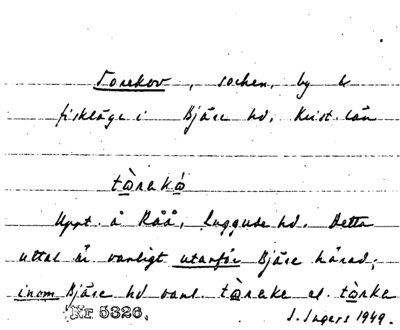 Torekov, socken, by &
fiskläge i Bjäre hd, Krist. län
tòrekó
Uppt. å Råå, Luggude hd. Detta
uttal är vanligt utanför Bjäre härad;
inom Bjäre hd vanl. tòrake el. tòrka
Nr 5326. J. Ingers 1949.